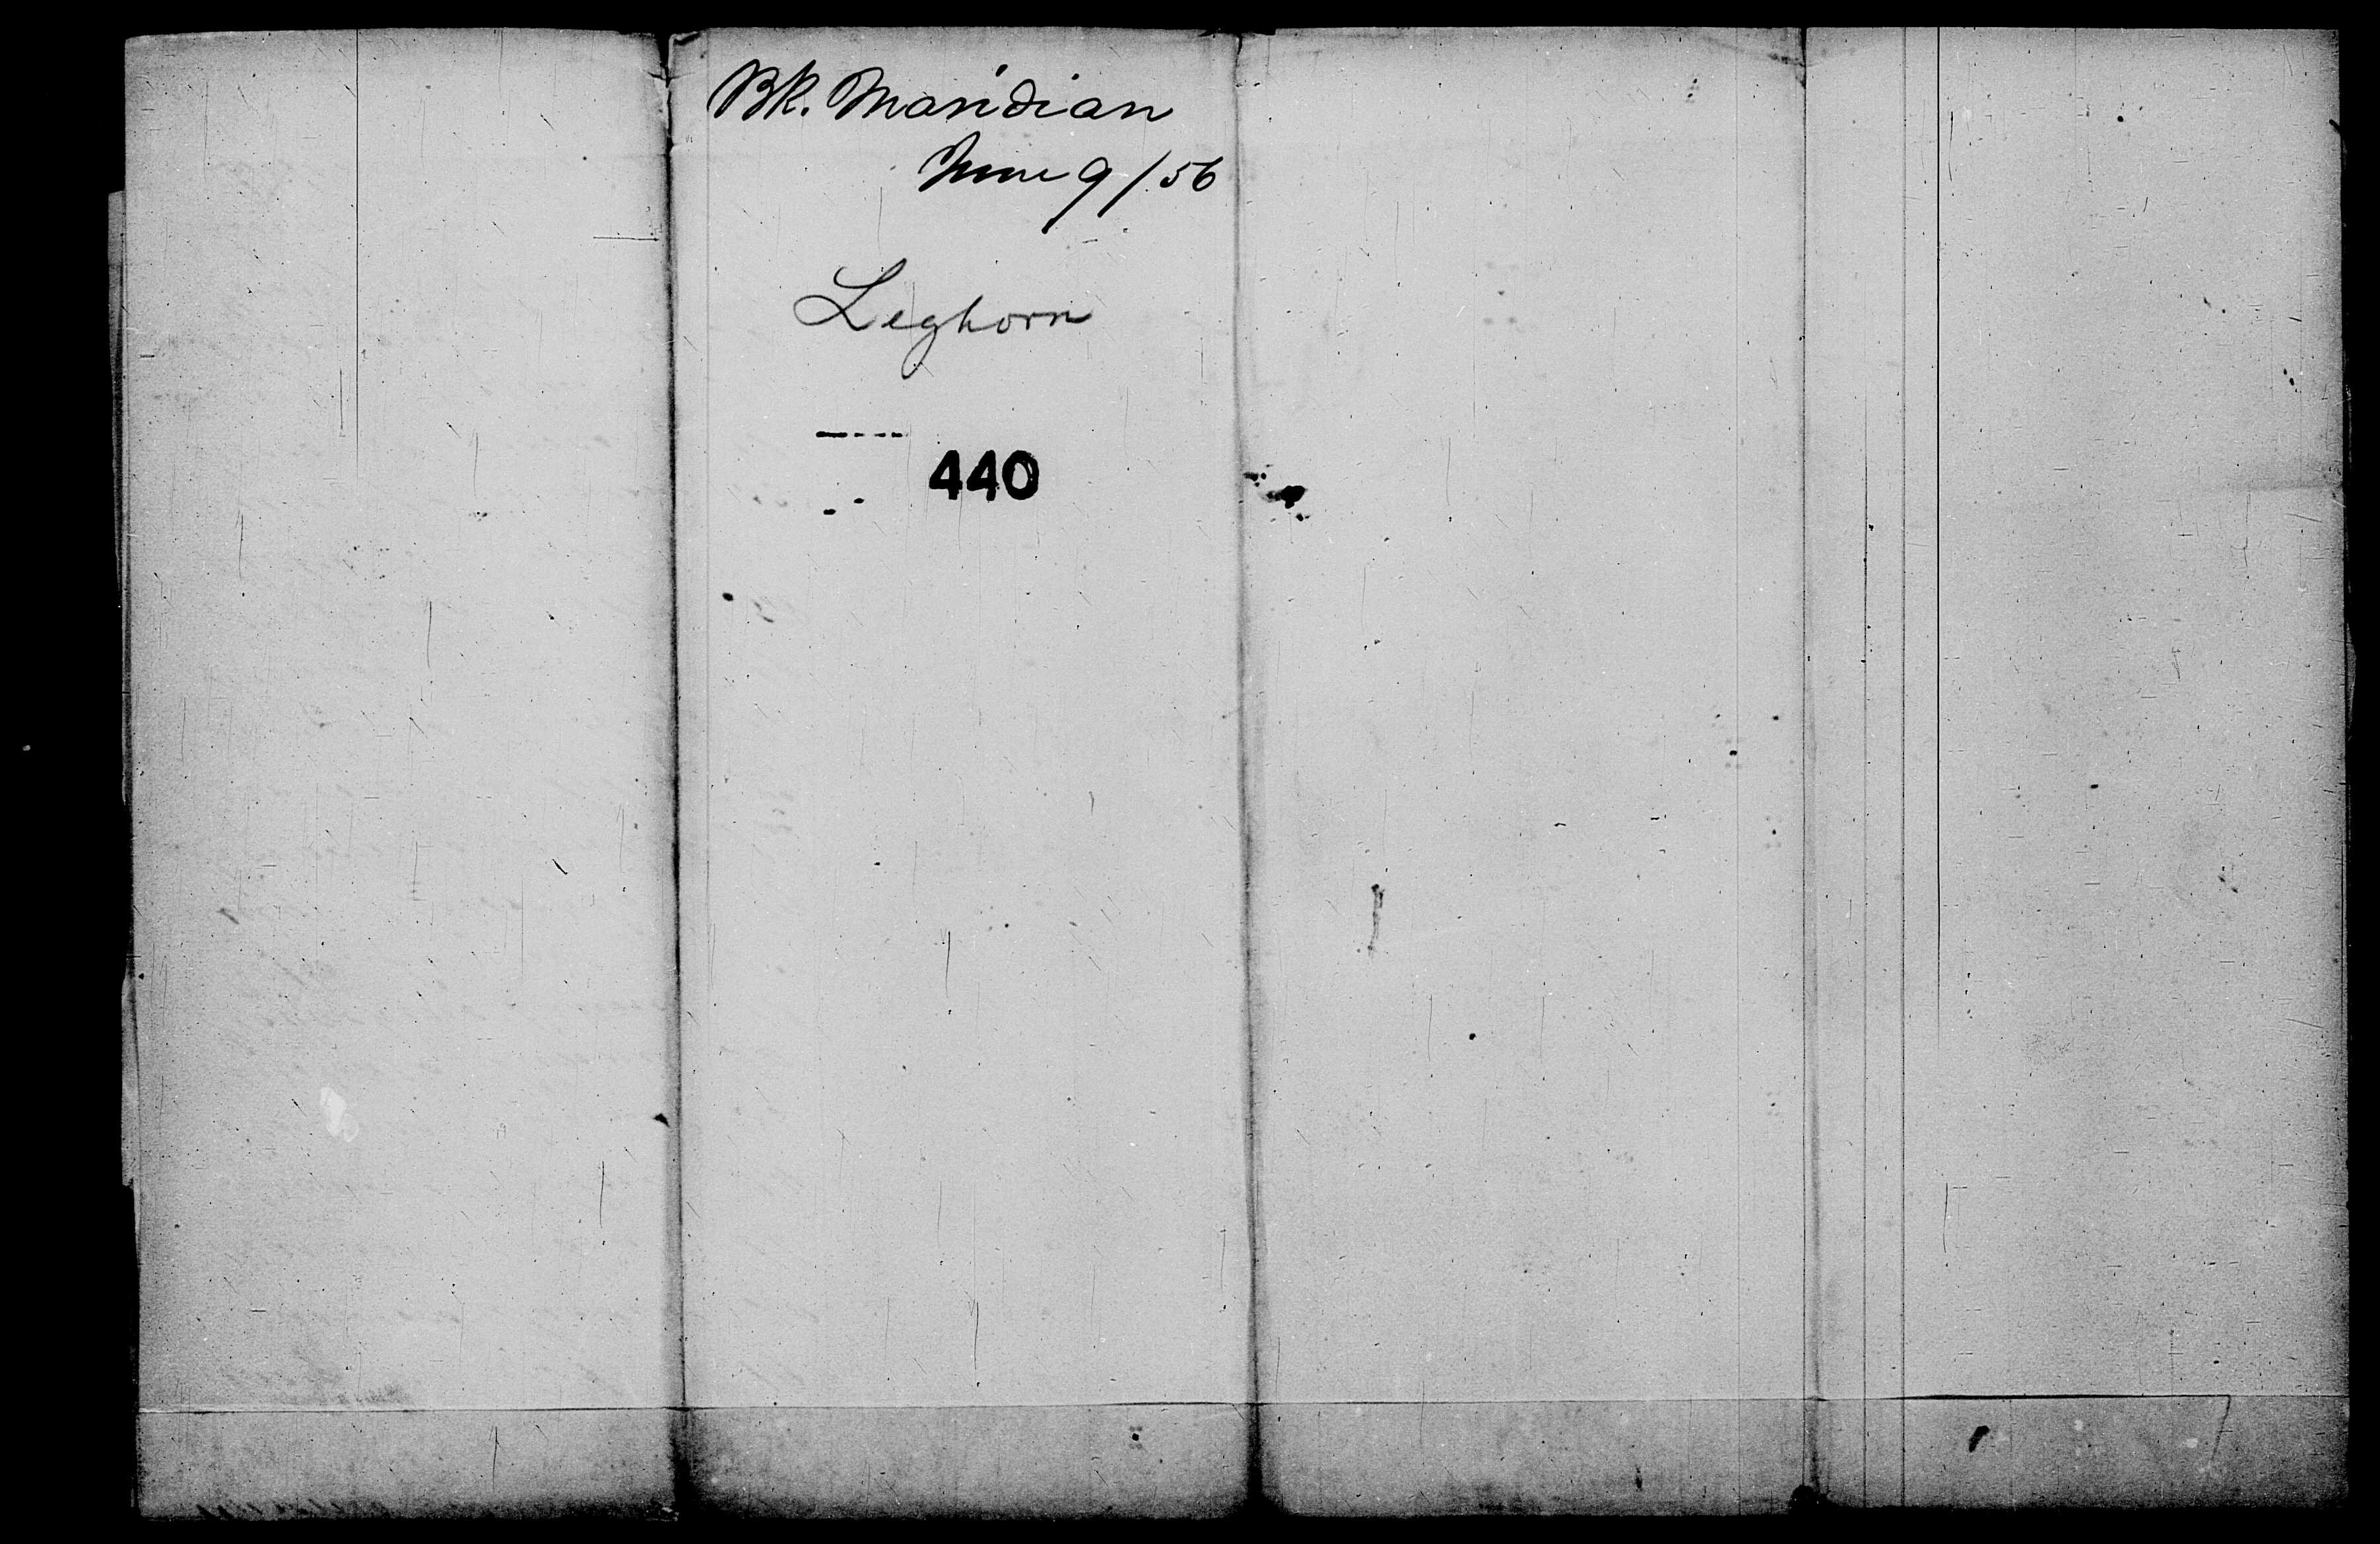 Bk. Maridian
June 9/56
Leghorn
440